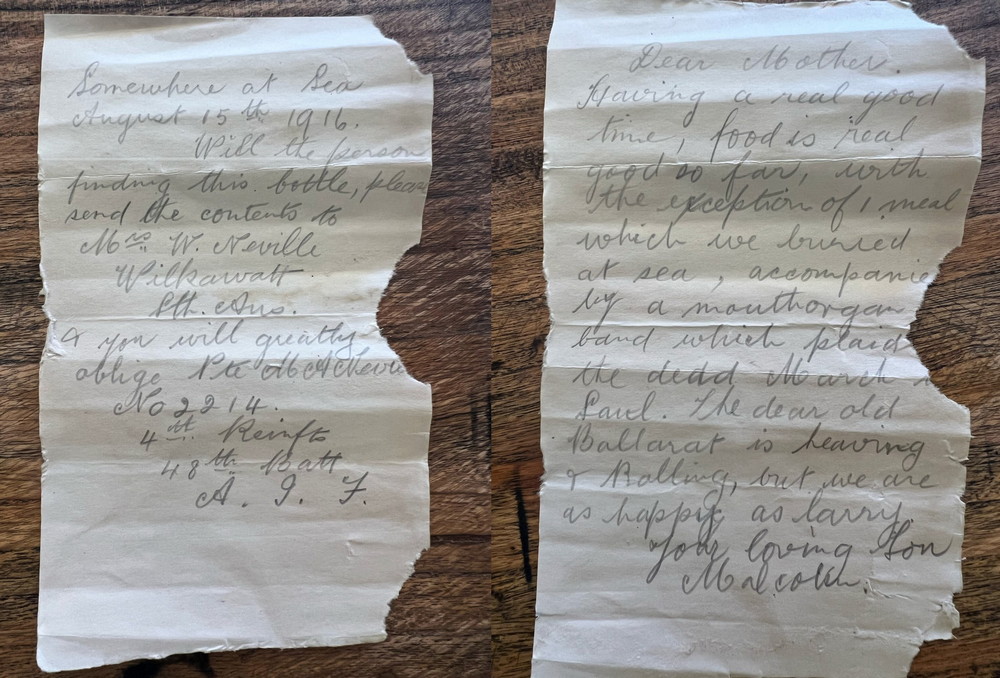 Somewhere at Sea
August 15th 1916.
Will the person
finding this bottle, please
send the contents to
Mrs W. Neville
Wilkawatt
Sth. Aus.
& you will greatly
oblige Pte M A Nevi
No 2214.
4th Reinfts
48th Batt
A. I. F.
Dear Mother.
Having a real good
time, food is real
good so far, with
the exception of 1 meal
which we buried
at sea, accompanie
by a mouthorgan
band which plaid
the dedd March
Saul. The dear old
Ballarat is heaving
& Rolling, but we are
as happy as larry.
Your loving Son
Malcolm.